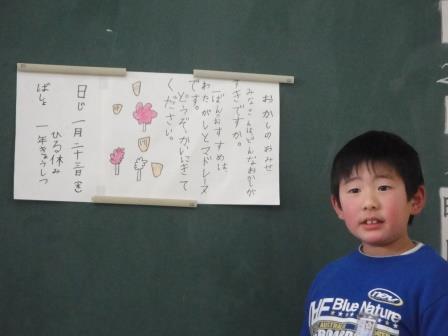 おかしのおみせ
みなさんは、どんなおかしが
すきですか。
一ばんのおすすめは、
わたがしとマドレーヌ
です。
どうぞ、かいにきて
ください。
日じ 一月二十三日(金)
ひる休み
ばしょ 一年きょうしつ
Blue Nature
AUSTRALIA